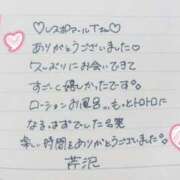 ♡レスポワールTさん♡
ありがとうございました♡
久しぶりにお会いできて
すごく嬉しかったです。
ローションお風呂…もっとトロトロに
なるはずでした名実
楽しい時間をありがとうございました。
芹沢